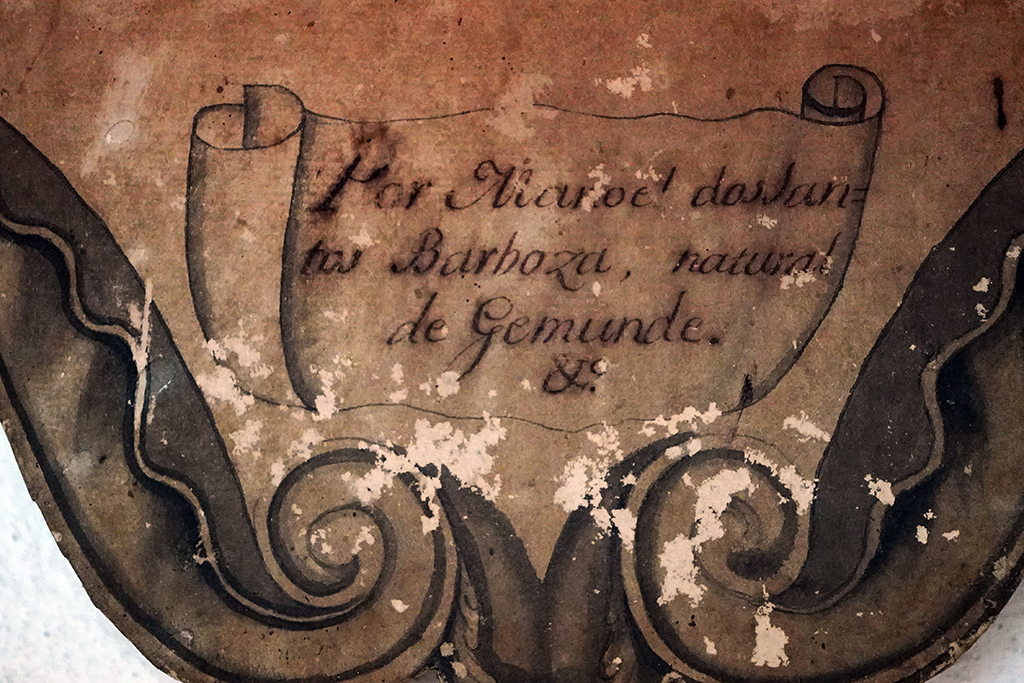 Por Manoel dosSan=
tos Barboza, natural
de Gemunde.
&c.